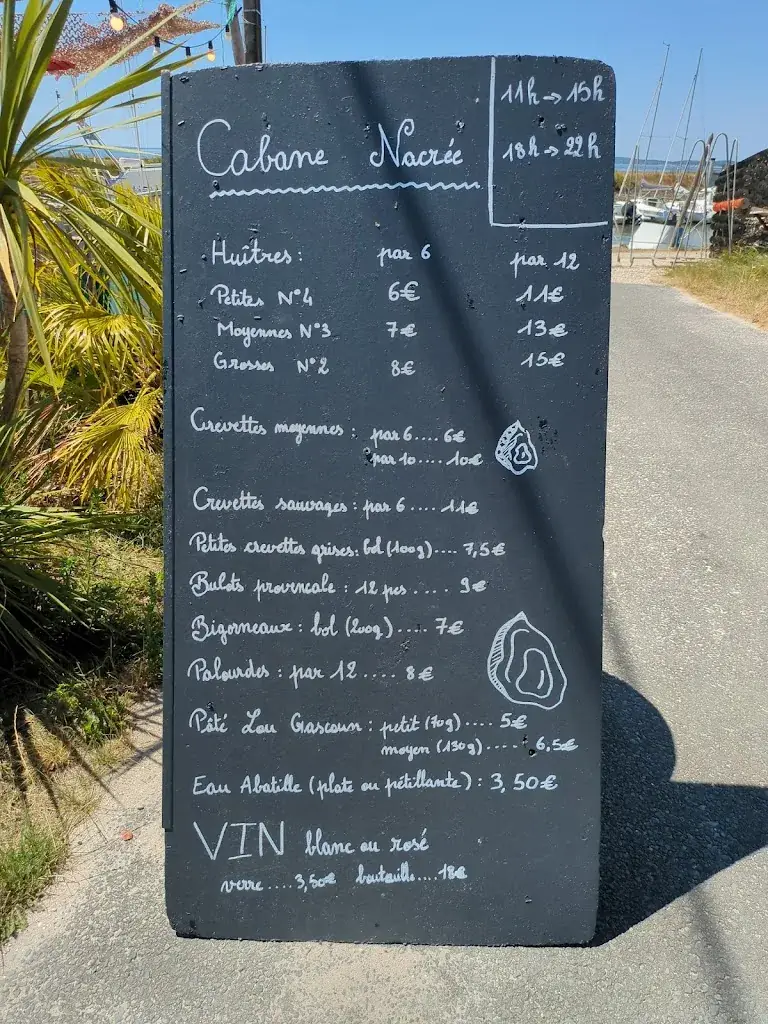 Cabane Nacrée
11h → 15h
18h → 22h
Huîtres: par 6 par 12
Petites N°4 6€ 11€
Moyennes N°3 7€ 13€
Grosses N°2 8€ 15€
Crevettes moyennes : par 6.... 6€
par 10.... 10€
Crevettes sauvages : par 6 .... 11€
Petites crevettes grises: bol (100g).... 7,5€
Bulots provencale : 12 pcs .... 9€
Bigorneaux : bol (200g) .... 7€
Palourdes : par 12 .... 8€
Pâté Lou Gascoun : petit (70g) .... 5€
moyen (130g) .... 6,5€
Eau Abatille (plate ou pétillante) : 3,50€
VIN blanc ou rosé
verre .... 3,50€ bouteille .... 18€